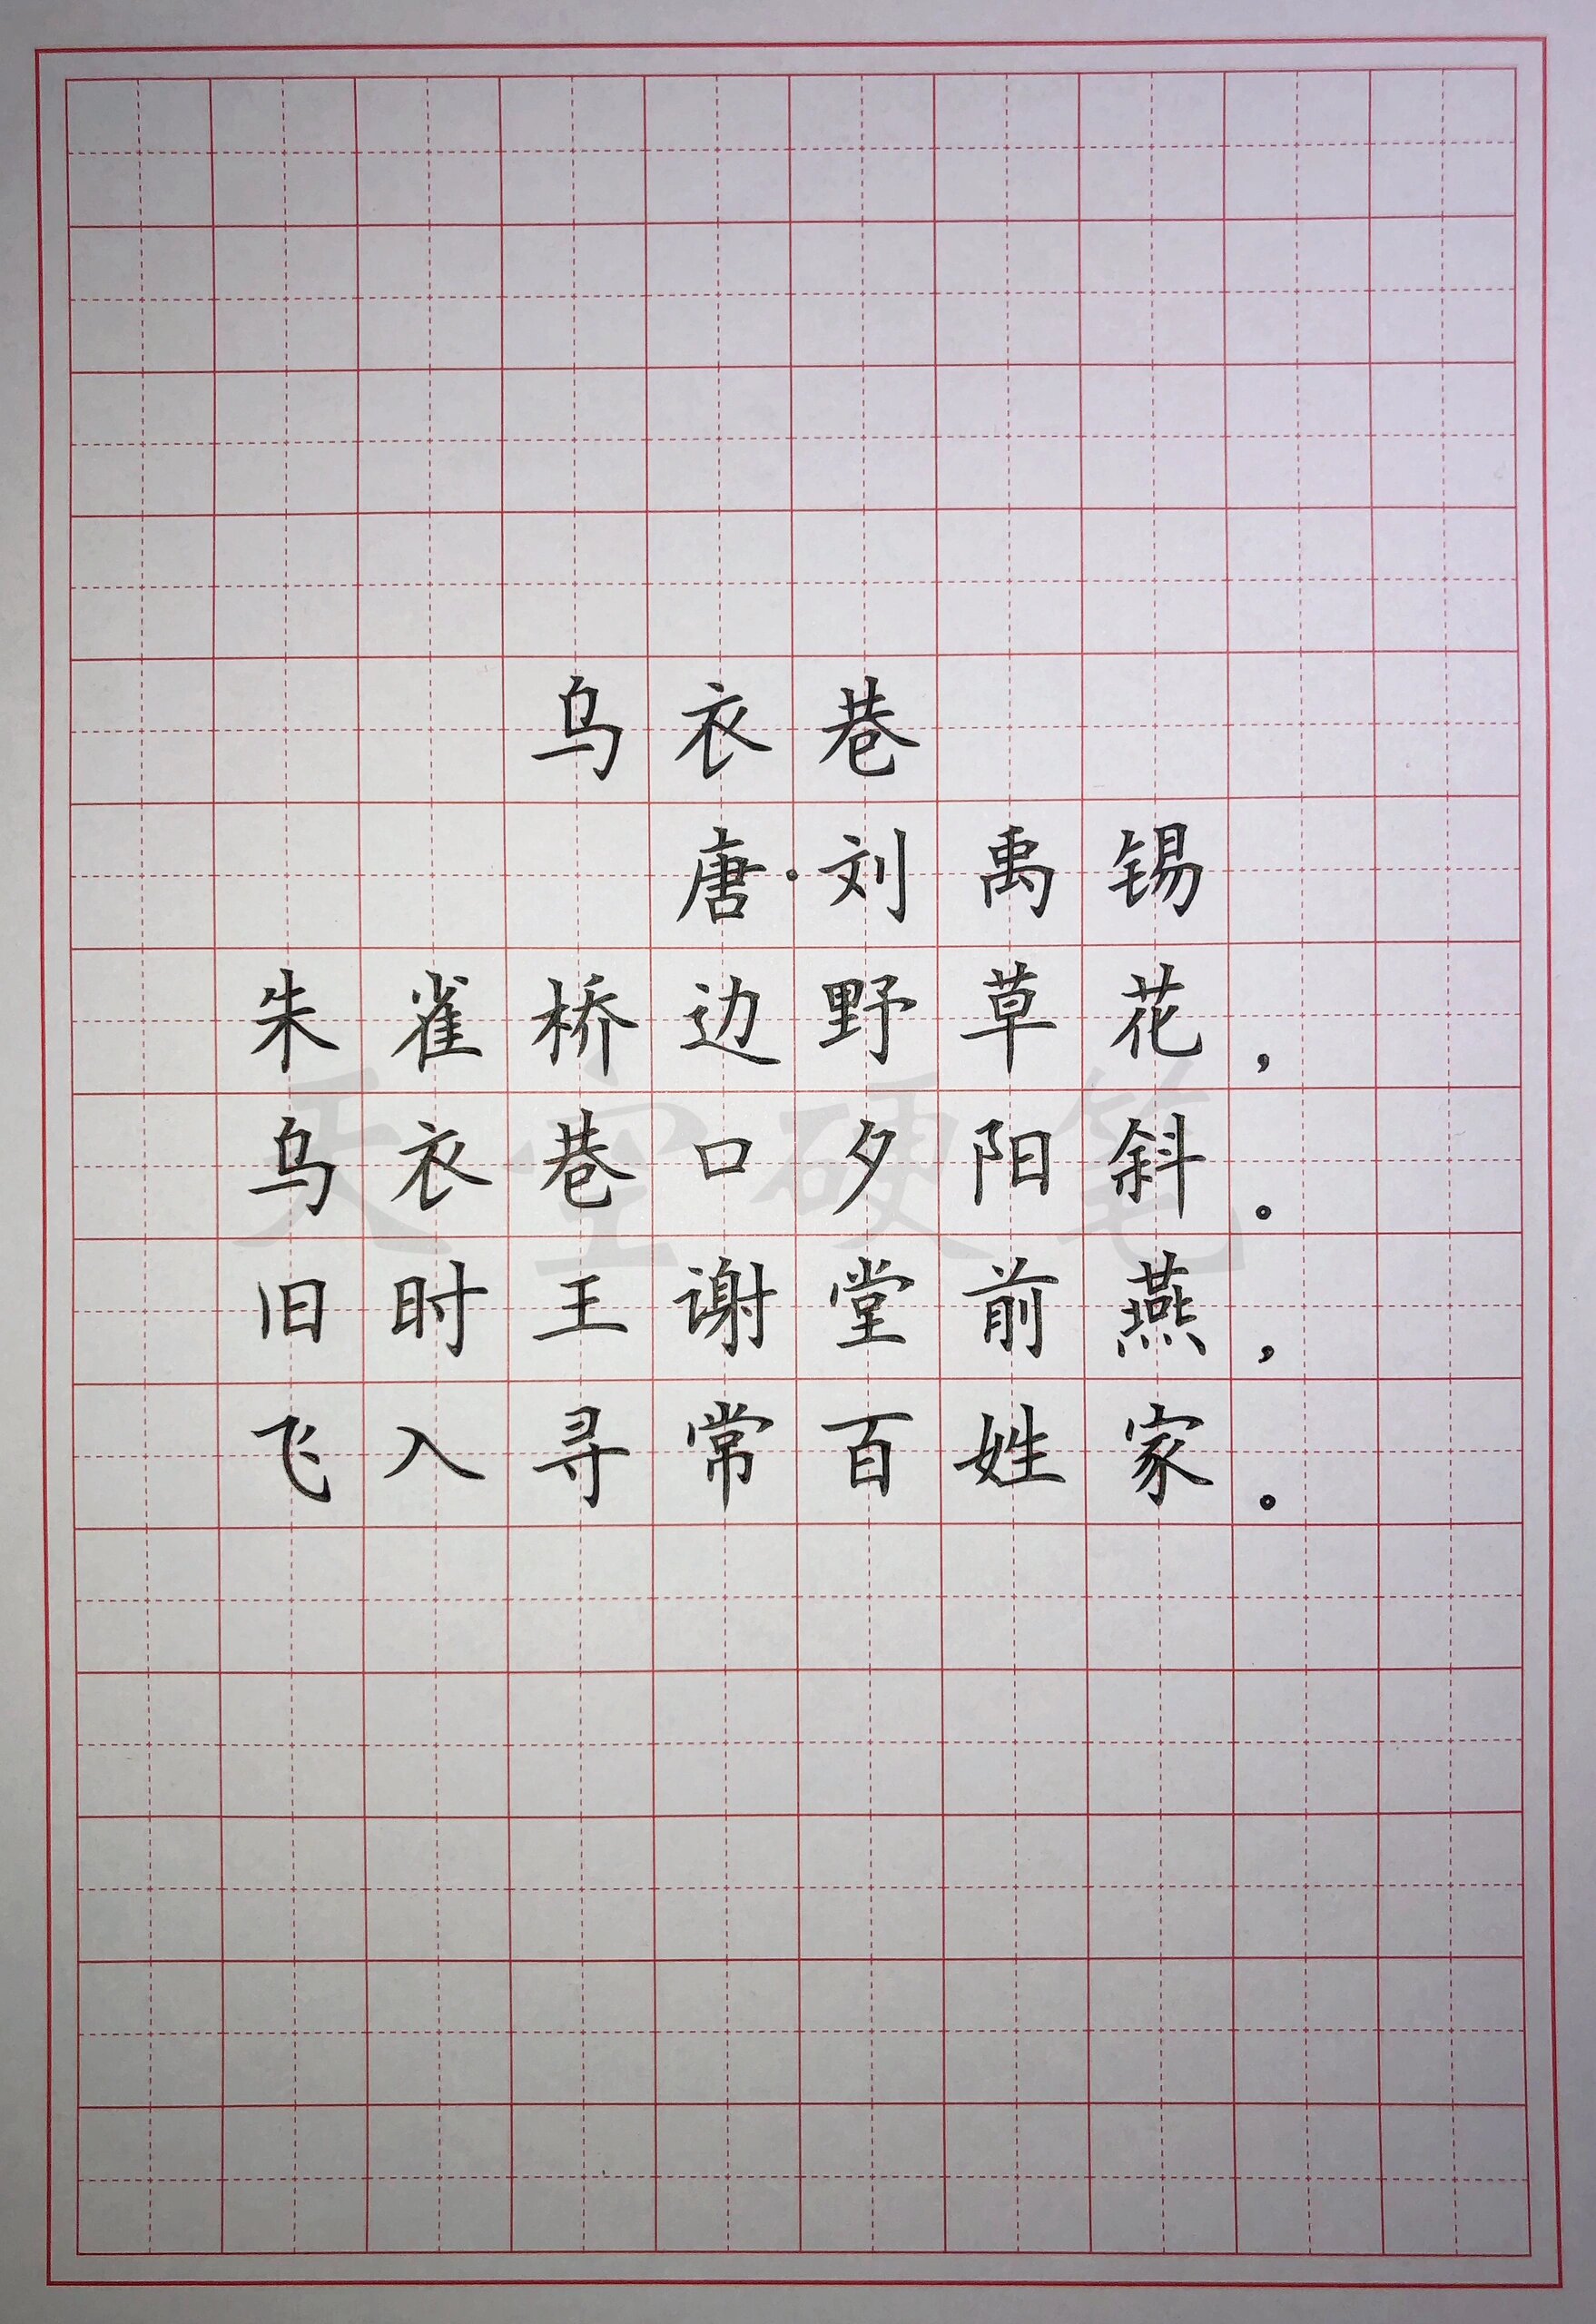 乌衣巷
唐·刘禹锡
朱雀桥边野草花，
乌衣巷口夕阳斜。
旧时王谢堂前燕，
飞入寻常百姓家。
天空硬笔